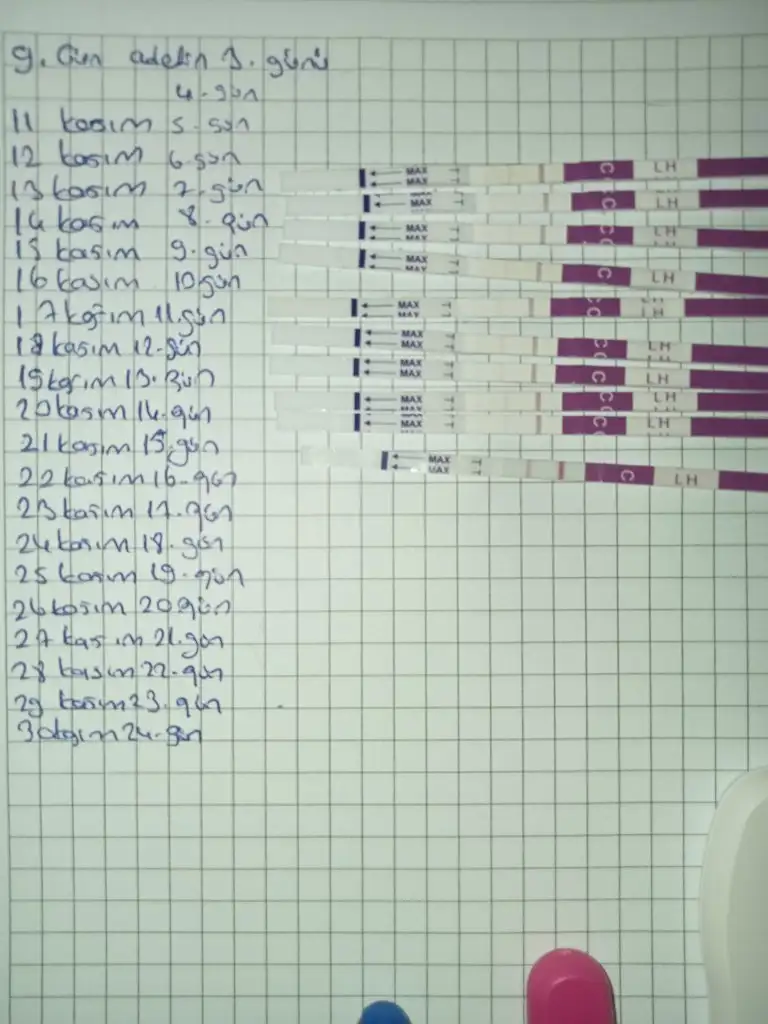 9. Gün adetin 3. günü
4. gün
11 kasım 5. gün
12 kasım 6. gün
13 kasım 7. gün
14 kasım 8. gün
15 kasım 9. gün
16 kasım 10 gün
17 kasım 11. gün
18 kasım 12. gün
19 kasım 13. gün
20 kasım 14. gün
21 kasım 15. gün
22 kasım 16. gün
23 kasım 17. gün
24 kasım 18. gün
25 kasım 19. gün
26 kasım 20 gün
27 kasım 21. gün
28 kasım 22. gün
29 kasım 23. gün
30 kasım 24. gün
MAX MAX C LH
MAX C LH
MAX MAX C LH
MAX MAX C LH
MAX MAX C LH
MAX MAX C LH
MAX MAX C LH
MAX C LH
MAX MAX C LH
MAX MAX C LH